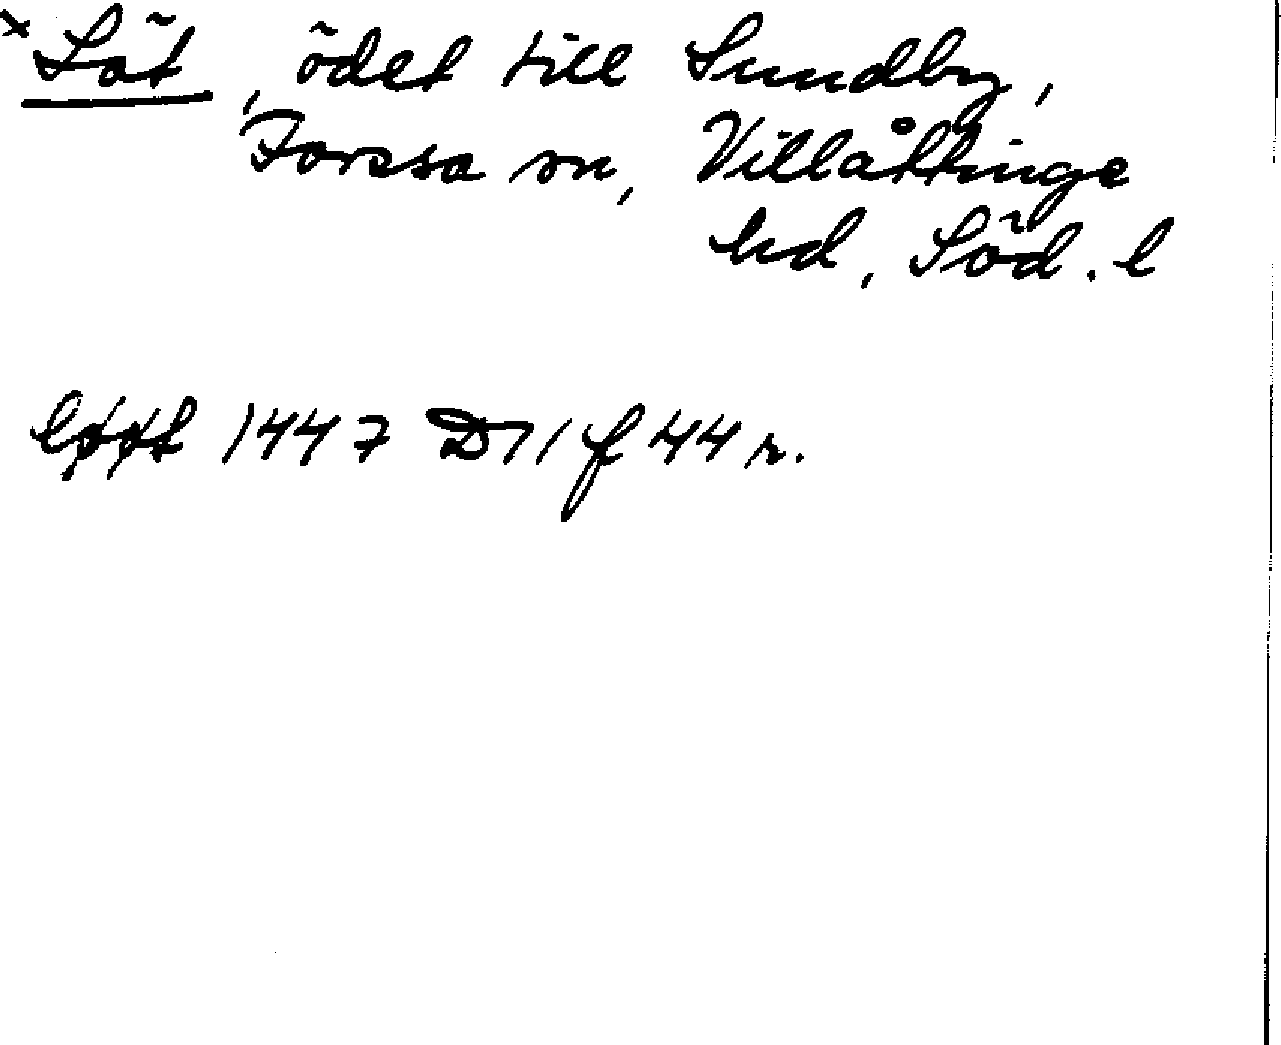 x Löt, ödet till Sundby,
Forssa sn, Villåttinge
hd, Söd. l
løøt 1447 D11 f 44 r.